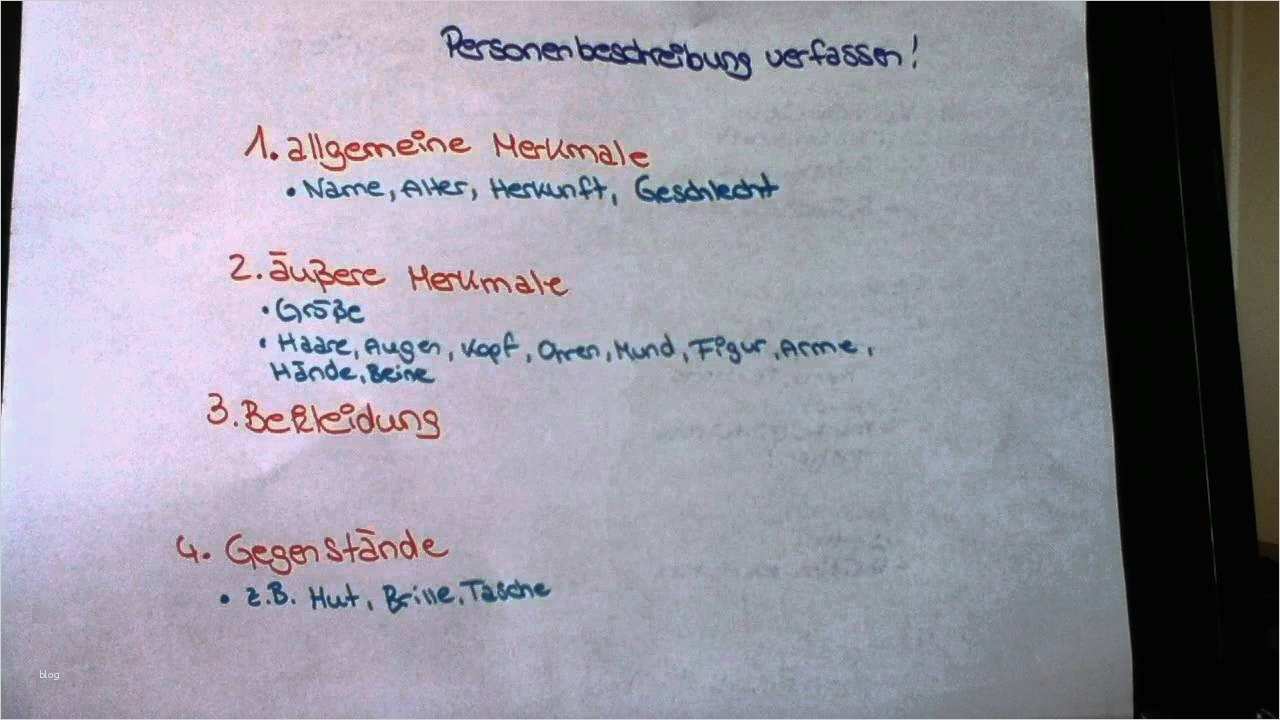 Personenbeschreibung verfassen!
1. allgemeine Merkmale
• Name, Alter, Herkunft, Geschlecht
2. äußere Merkmale
• Größe
• Haare, Augen, Kopf, Ohren, Mund, Figur, Arme,
Hände, Beine
3. Bekleidung
4. Gegenstände
• z.B. Hut, Brille, Tasche
blog